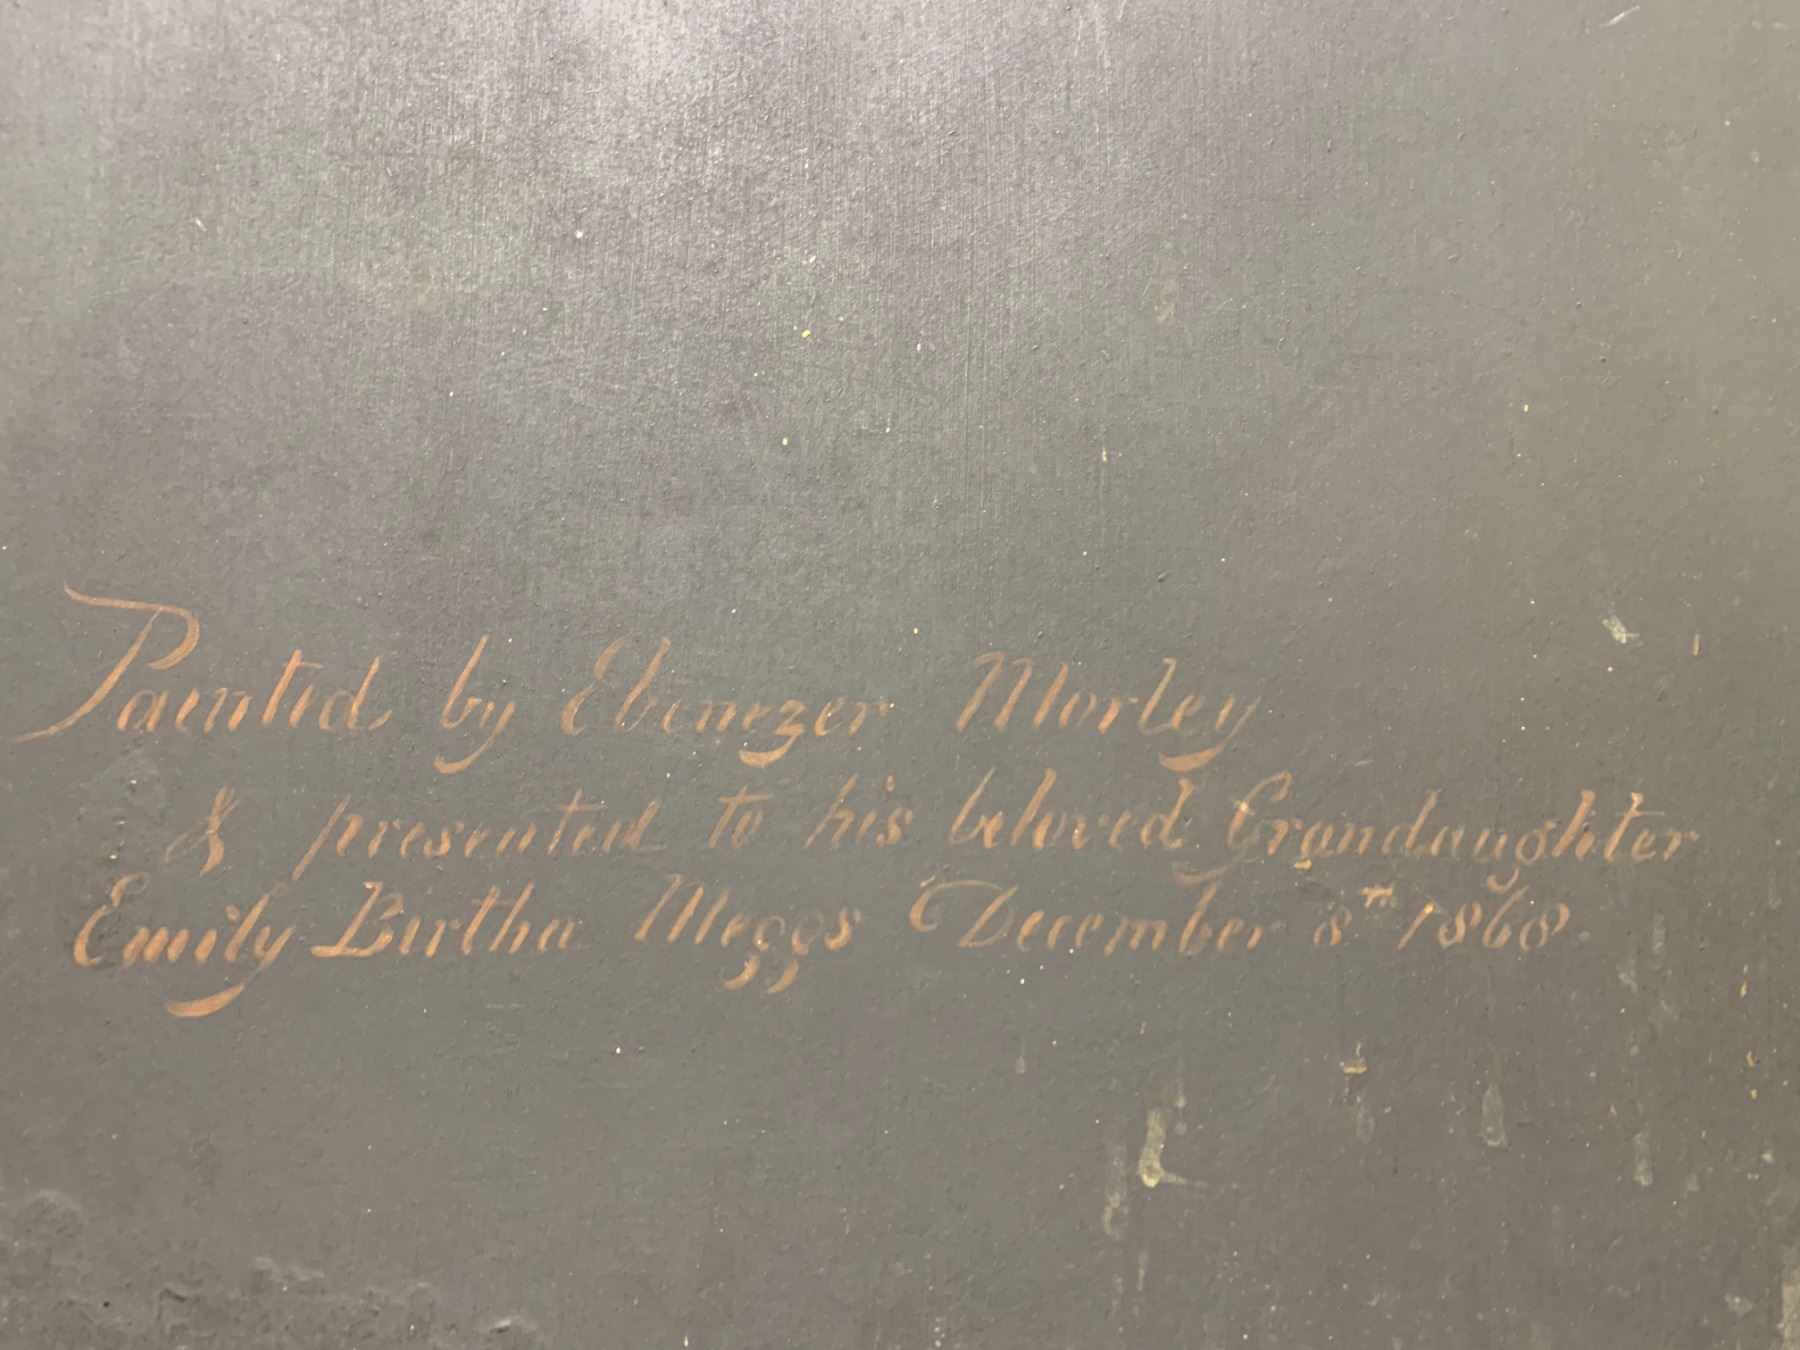 Painted by Ebenezer Morley
& presented to his beloved Grandaughter
Emily Birtha Meggs December 8th 1868.